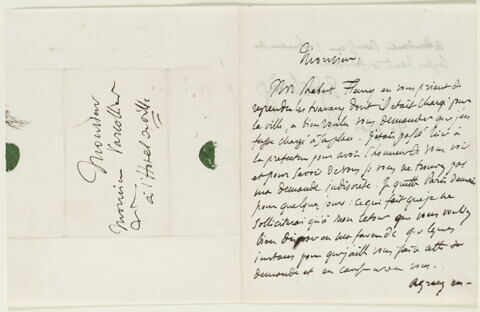 Monsieur
Monsieur Varcollier
à l'Hotel de Ville
Monsieur,
Mr. Robert Fleury en vous priant de
reprendre les travaux dont il était chargé pour
la ville, a bien voulu vous demander que j'en
fusse chargé à sa place. J'étais passé hier à
la préfecture pour avoir l'honneur de vous voir
et pour savoir de vous si vous ne trouvez pas
ma demande indiscrète. Je quitte Paris demain
pour quelques jours : ce qui fait que je ne
solliciterai qu'à mon retour que vous vouliez
bien disposer en ma faveur de quelques
instans pour que j'aille vous faire cette
demande et en causer avec vous...
Agréez en-